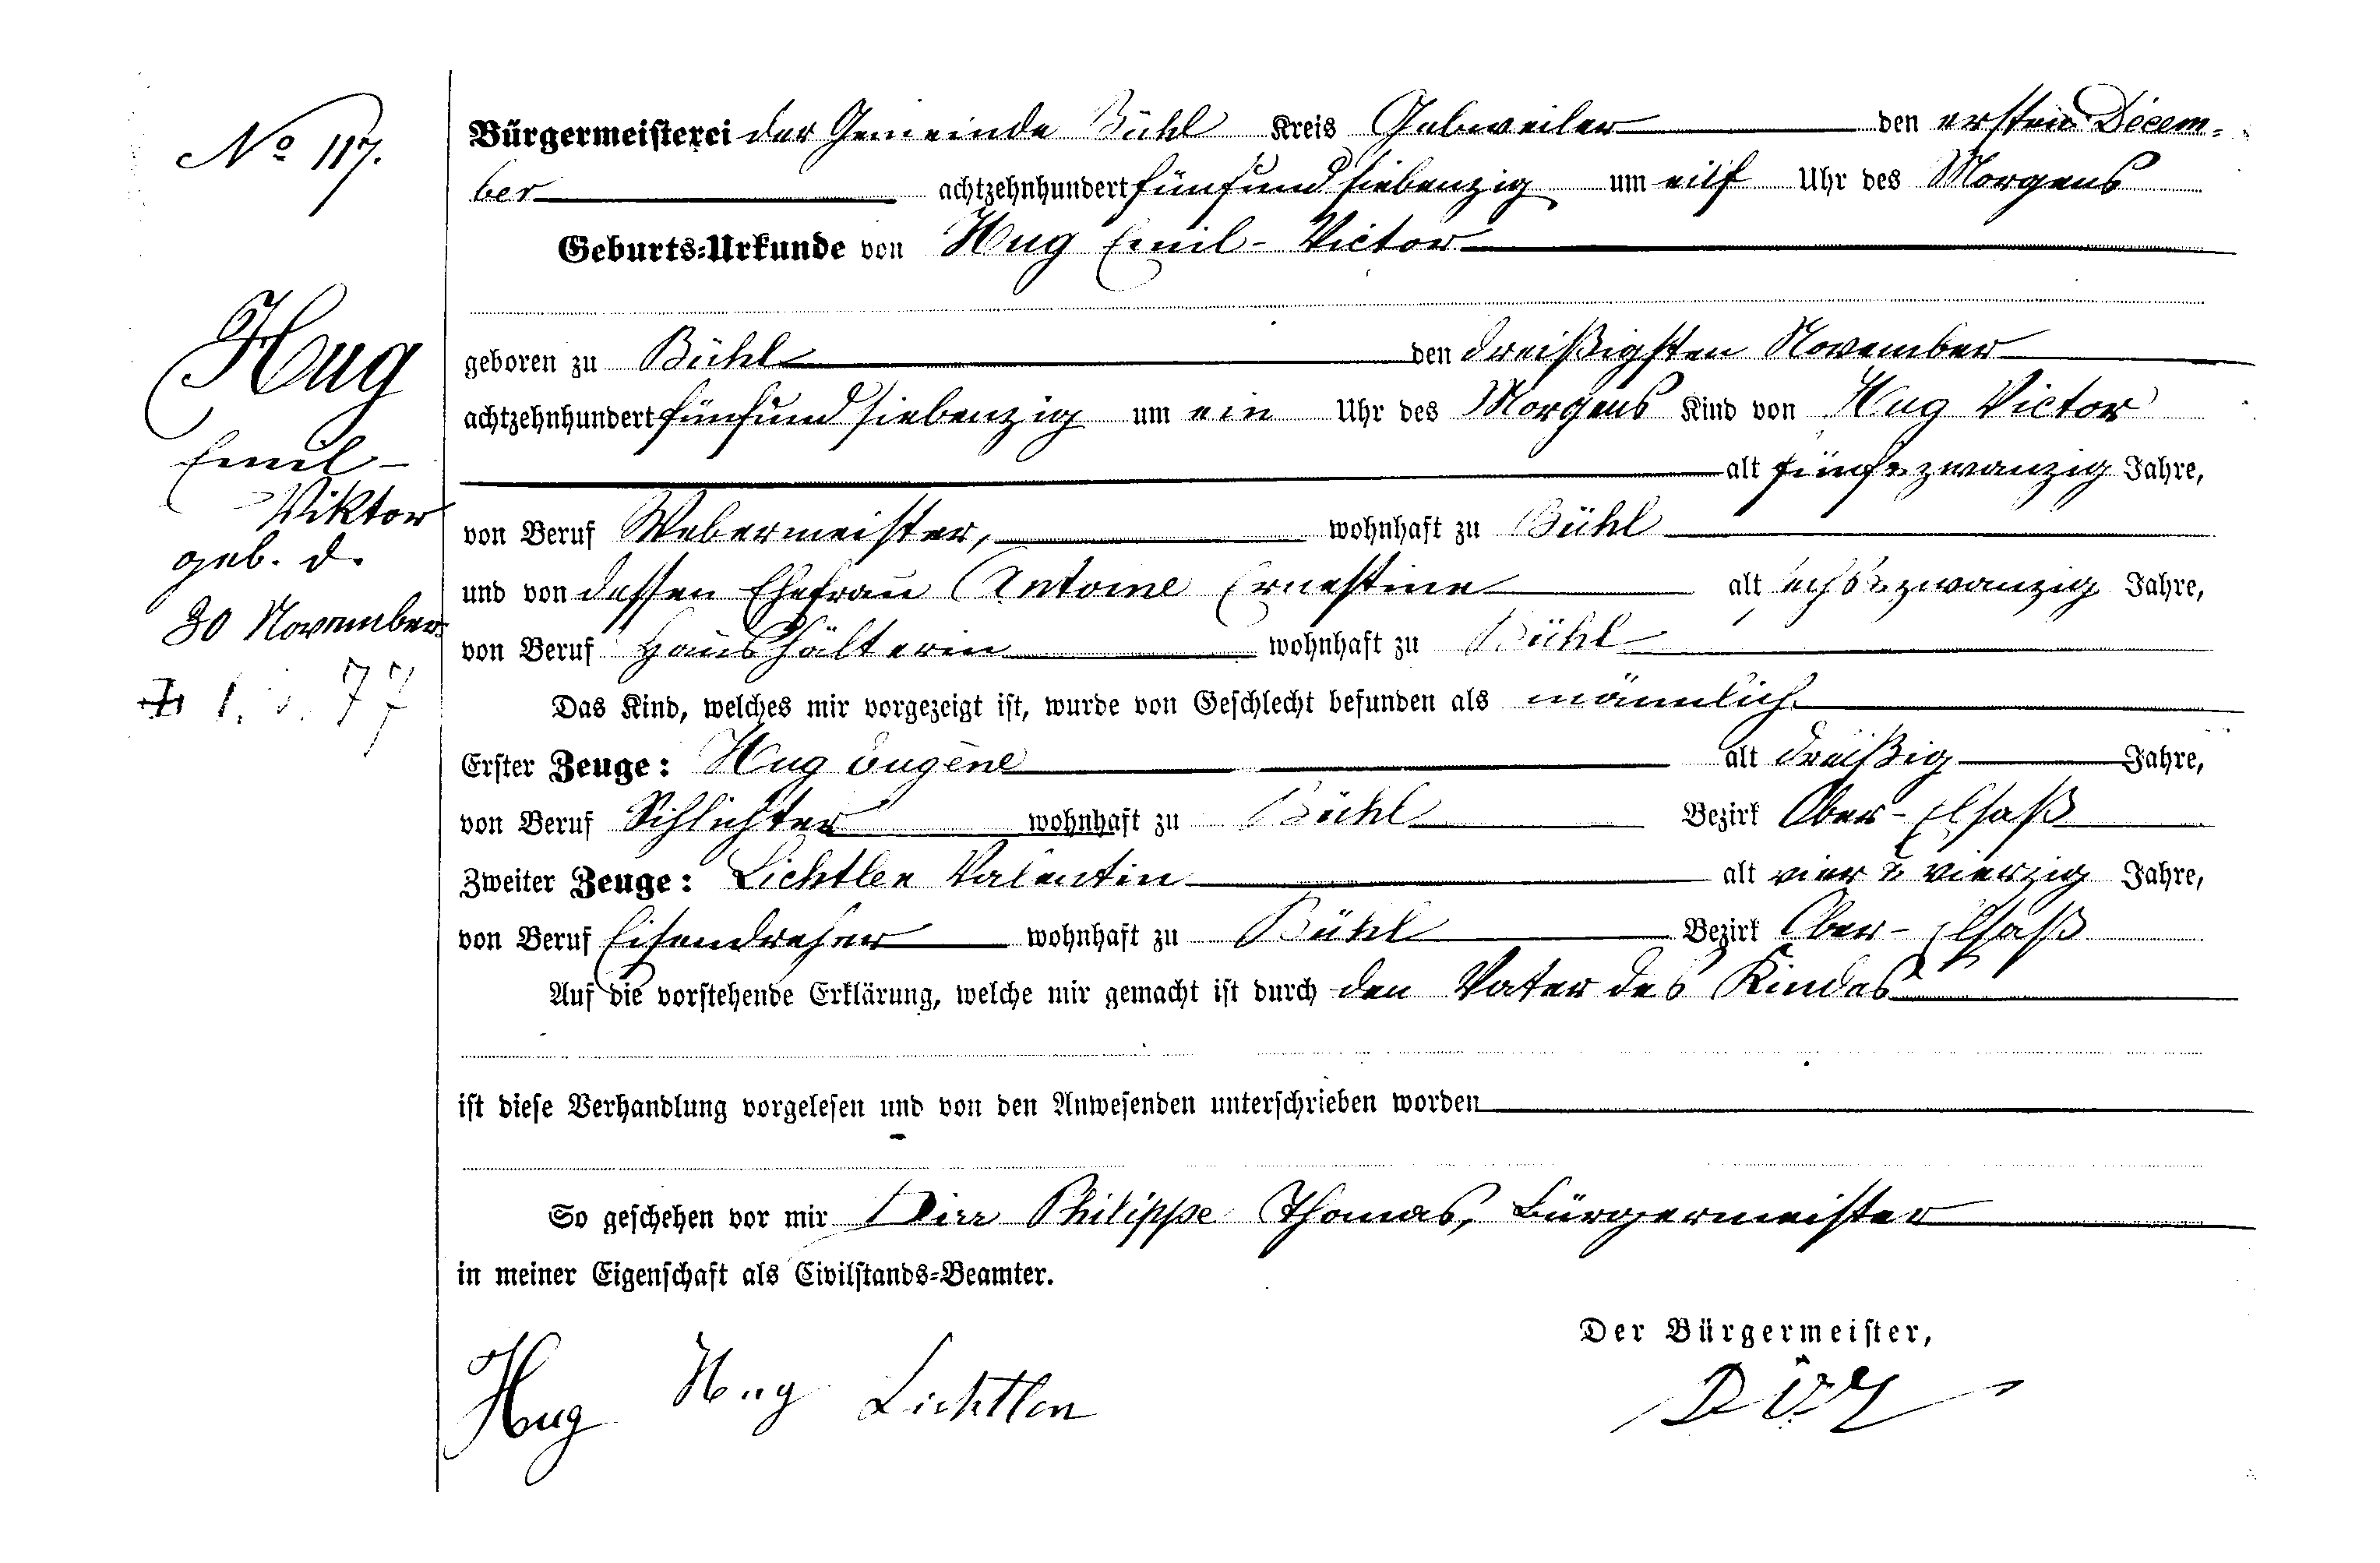 No 117.
Bürgermeisterei der Gemeinde Bühl Kreis Gebweiler den ersten Décem=
ber achtzehnhundert fünfund siebenzig um eilf Uhr des Morgens
Geburts-Urkunde von Hug Emil-Victor
Hug
Emil-
Viktor
geb. d.
30 November
geboren zu Bühl den dreißigsten November
achtzehnhundert fünfund siebenzig um ein Uhr des Morgens Kind von Hug Victor
alt fünf u zwanzig Jahre,
von Beruf Webermeister, wohnhaft zu Bühl
und von dessen Ehefrau Antoine Ernestine alt sechs u zwanzig Jahre,
von Beruf Haushälterin wohnhaft zu Bühl
Das Kind, welches mir vorgezeigt ist, wurde von Geschlecht befunden als männlich.
Erster Zeuge: Hug Eugène alt dreißig Jahre,
von Beruf Schlichter wohnhaft zu Bühl Bezirk Ober-Elsaß
Zweiter Zeuge: Lichtlen Valentin alt vier u vierzig Jahre,
von Beruf Eisendreher wohnhaft zu Bühl Bezirk Ober-Elsaß
Auf die vorstehende Erklärung, welche mir gemacht ist durch den Vater des Kindes
ist diese Verhandlung vorgelesen und von den Anwesenden unterschrieben worden
So geschehen vor mir Dirr Philippe Thomas, Bürgermeister
in meiner Eigenschaft als Civilstands-Beamter.
Der Bürgermeister,
Hug Hug Lichtlen